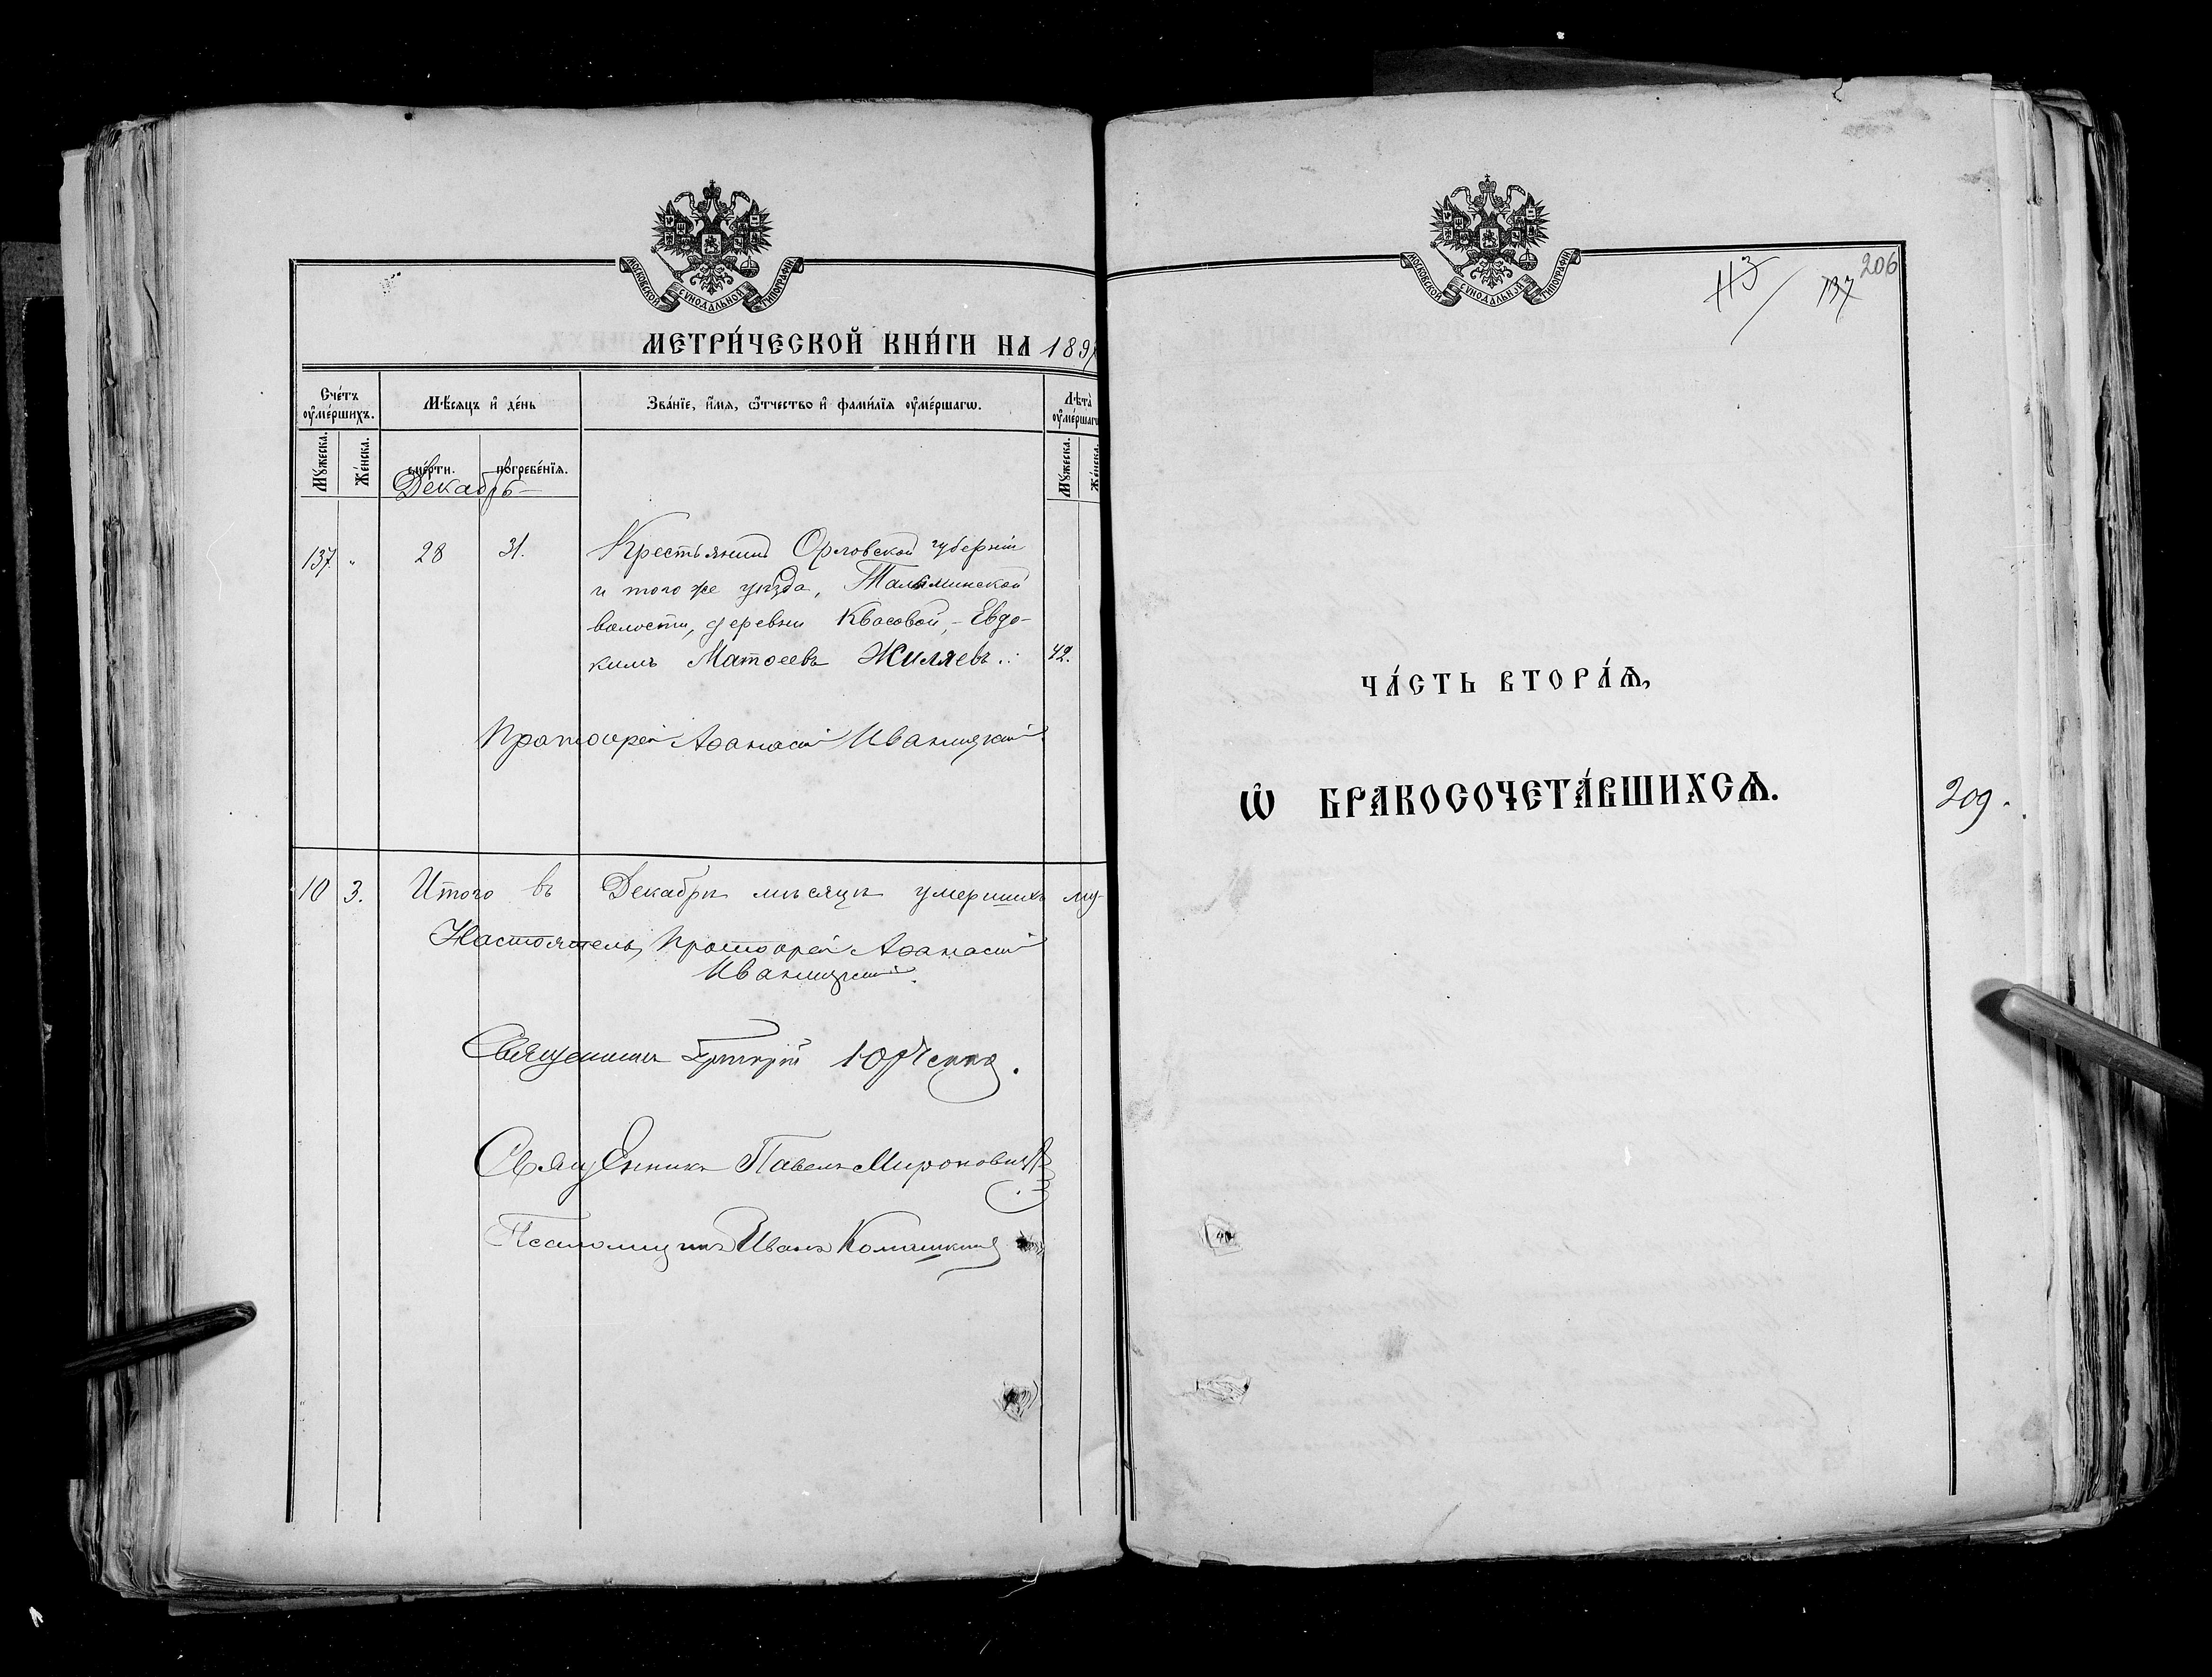 МОСКОВСКОЙ СѴНОДАЛЬНОЙ ТИПОГРАФИИ
МЕТРИ́ЧЕСКОЙ КНИ́ГИ НА 189
Сче́тъ оу҆ме́ршихъ.
Мѣ́сяцъ и҆ де́нь
Зва́нїе, и҆́мя, ѻ҆́тчество и҆ фами́лїя оу҆ме́ршагѡ.
Лѣта̀ оу҆ме́ршагѡ
Мꙋ́жеска.
Же́нска.
сме́рти.
погребе́нїя.
Мꙋ́жеска.
Же́нска.
Декабрь
137. " 28 31. Крестьянинъ Орловской губерніи
и того же уѣзда,
волости, деревни Квасовой, - Евдо-
кимъ Матѳеевъ Жиляевъ. 42.
Протоіерей Аѳанасій Иваницкій.
10 3. Итого въ Декабрѣ мѣсяцѣ умершихъ му-
Настоятель, Протоіерей Аѳанасій
Иваницкій.
Священникъ Григорій Юрченко.
Священникъ Павелъ Мироновичъ
Псаломщикъ Иванъ Комашкинъ
МОСКОВСКОЙ СѴНОДАЛЬНОЙ ТИПОГРАФИИ
113 / 137 206
ЧА́СТЬ ВТОРА́Ѧ,
Ѡ҆ БРАКОСОЧЕТА́ВШИХСѦ.
209.